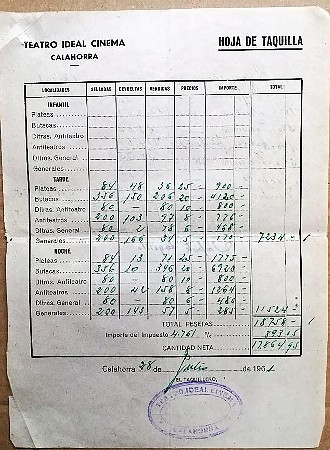 TEATRO IDEAL CINEMA
CALAHORRA
HOJA DE TAQUILLA
LOCALIDADES SELLADAS DEVUELTAS VENDIDAS PRECIOS IMPORTE TOTAL
INFANTIL
Plateas
Butacas
Dltras. Anfiteatro
Anfiteatros
Dltras. General
Generales
TARDE
Plateas 84 48 36 25 900
Butacas 356 150 206 20 4120
Dltras. Anfiteatro 80 80 10 800
Anfiteatros 200 103 97 8 776
Dltras. General 80 2 78 6 468
Generales 200 166 34 5 170 7234
NOCHE
Plateas 84 13 71 25 1775
Butacas 356 10 346 20 6920
Dltras. Anfiteatro 80 80 10 800
Anfiteatros 200 42 158 8 1264
Dltras. General 80 80 6 480
Generales 200 143 57 5 285 11524
TOTAL PESETAS 18758
Importe del Impuesto 4.761 %
CANTIDAD NETA
Calahorra 28 de Julio de 1961
EL TAQUILLERO,
TEATRO IDEAL CINEMA
CALAHORRA